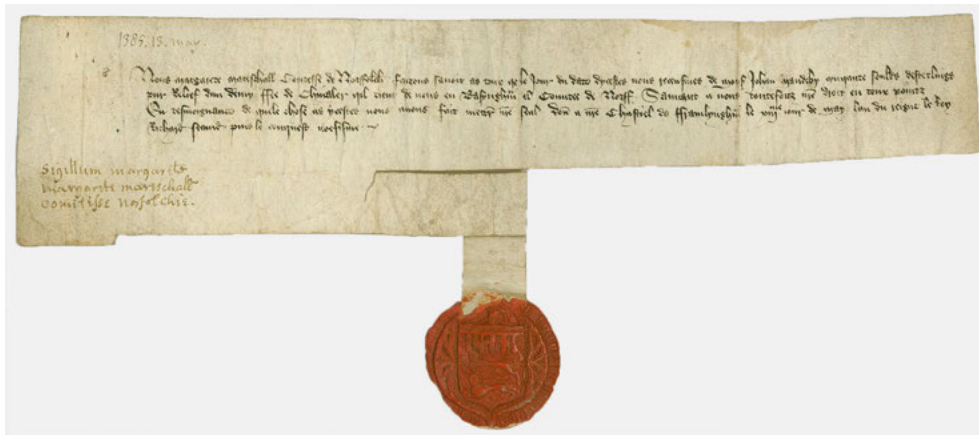 1385. 13. may.
Nous Margarete Mareschall Contesse de Norffolch' faceons savoir as touz qe le jour du date dycestes nous receusmes de mons' Johan quarante souldz desterlings
pur Relief dun demy ffee de Chivaler qil tient de nous en Basinghm el Countee de Norff. Savaunt a nous toutefoitz nre droit en touz pointz
En tesmoignance de quele chose as ycestes nous avons fait mettre nre seal Don a nre Chastiel de fframlyngham le jour de may lan du regne le Roy
Richard secund puis le conquest noefisme
Sigillum margarete
margarete marischall
comitisse norfolchie.